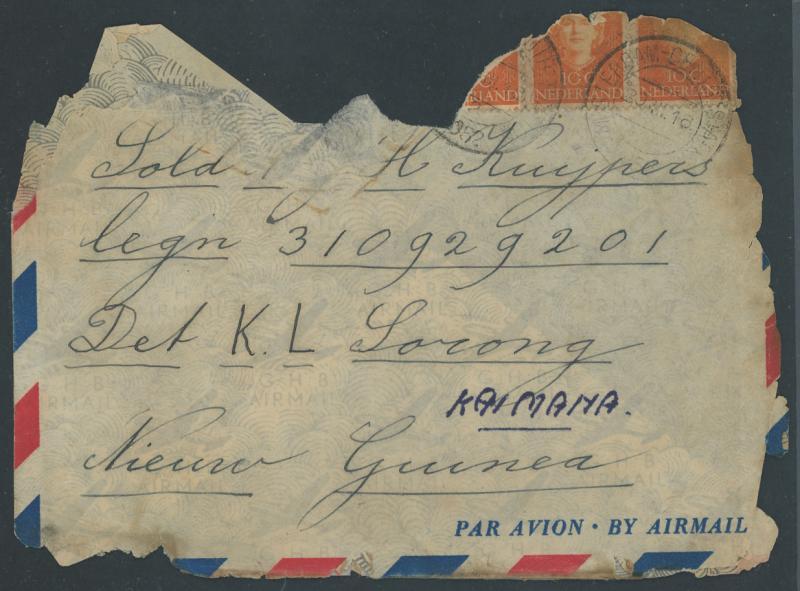 10 C
NEDERLAND
10 C
NEDERLAND
Sold 1 H Kuypers
legn 310929201
Det K. L Sorong
KAIMANA.
Nieuw Guinea
PAR AVION · BY AIRMAIL
G·H·B
AIRMAIL